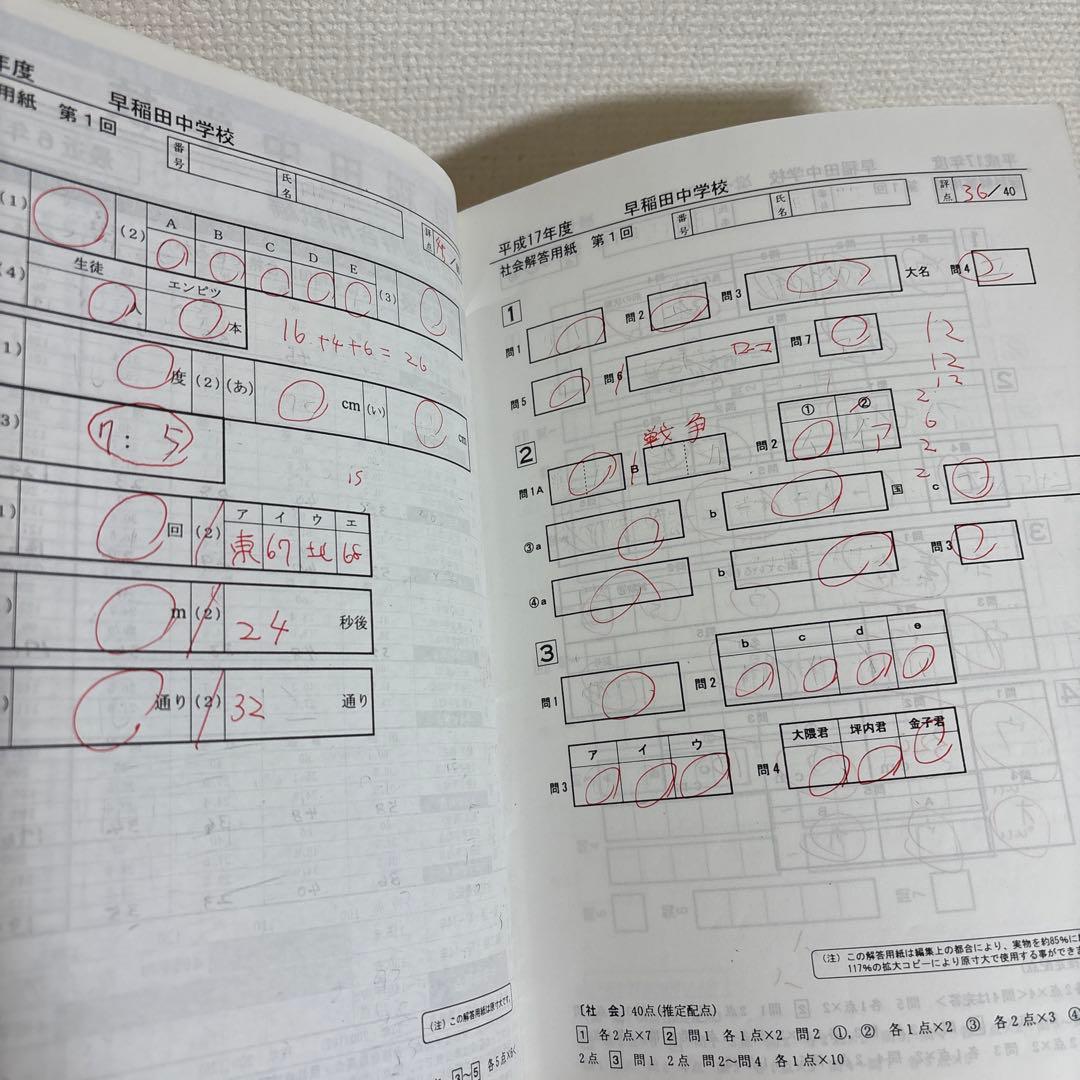 年度
早稲田中学校
用紙 第1回
番号
氏名
評点
(1)
(2)
A
B
C
D
E
(3)
(4)
生徒
人
エンピツ
本
16+4+6=26
度
(2)
(あ)
cm
(い)
cm
7:5
15
回
(2)
ア
イ
ウ
エ
東
67
北
68
m
(2)
24
秒後
通り
(2)
32
通り
(注) この解答用紙は原寸大です。
3~5 各5点×
平成17年度
早稲田中学校
社会解答用紙 第1回
番号
氏名
評点
36/40
1
問1
問2
問3
大名
問4
問5
問6
ローマ
問7
12
12
12
2
6
2
2
2
問1A
B
戦争
問2
①
②
ア
③a
b
国
c
④a
b
問3
3
問1
問2
b
c
d
e
問3
ア
イ
ウ
問4
大隈君
坪内君
金子君
(注) この解答用紙は編集上の都合により、実物を約85%に
117%の拡大コピーにより原寸大で使用する事ができ
〔社 会〕40点(推定配点)
1 各2点×7 2 問1 各1点×2 問2 ①,② 各1点×2 ③ 各2点×3 ④
2点 3 問1 2点 問2~問4 各1点×10